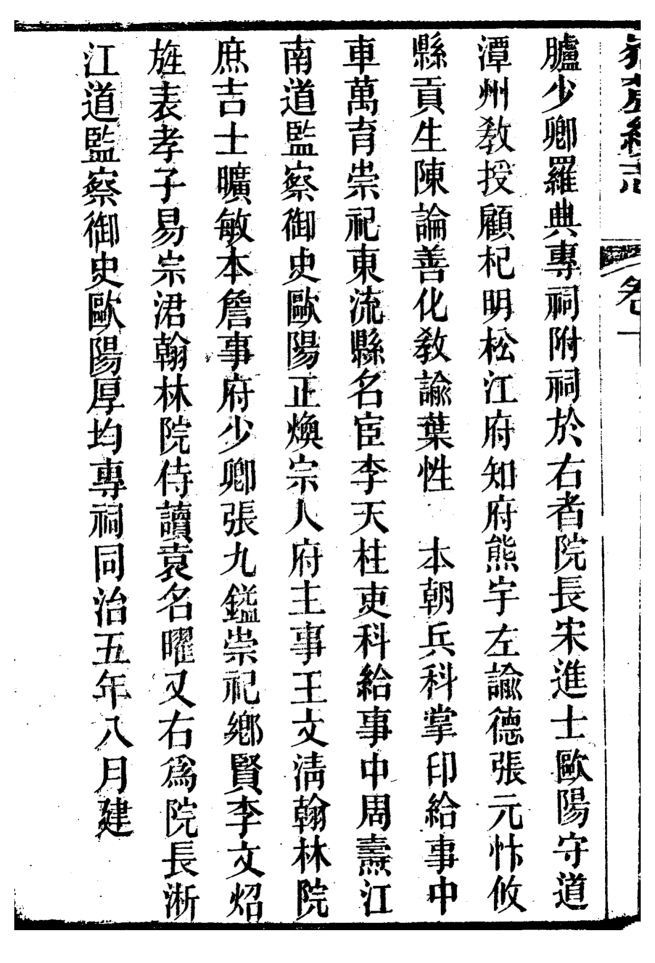 臚少卿羅典專祠附祠於右者院長宋進士歐陽守道
潭州敎授顧杞明松江府知府熊宇左諭德張元忭攸
縣貢生陳論善化敎諭葉性　本朝兵科掌印給事中
車萬育崇祀東流縣名宦李天柱吏科給事中周燾江
南道監察御史歐陽正煥宗人府主事王文清翰林院
庶吉士曠敏本詹事府少卿張九鎰崇祀鄉賢李文炤
旌表孝子易宗涒翰林院侍讀袁名曜又右爲院長淅
江道監察御史歐陽厚均專祠同治五年八月建